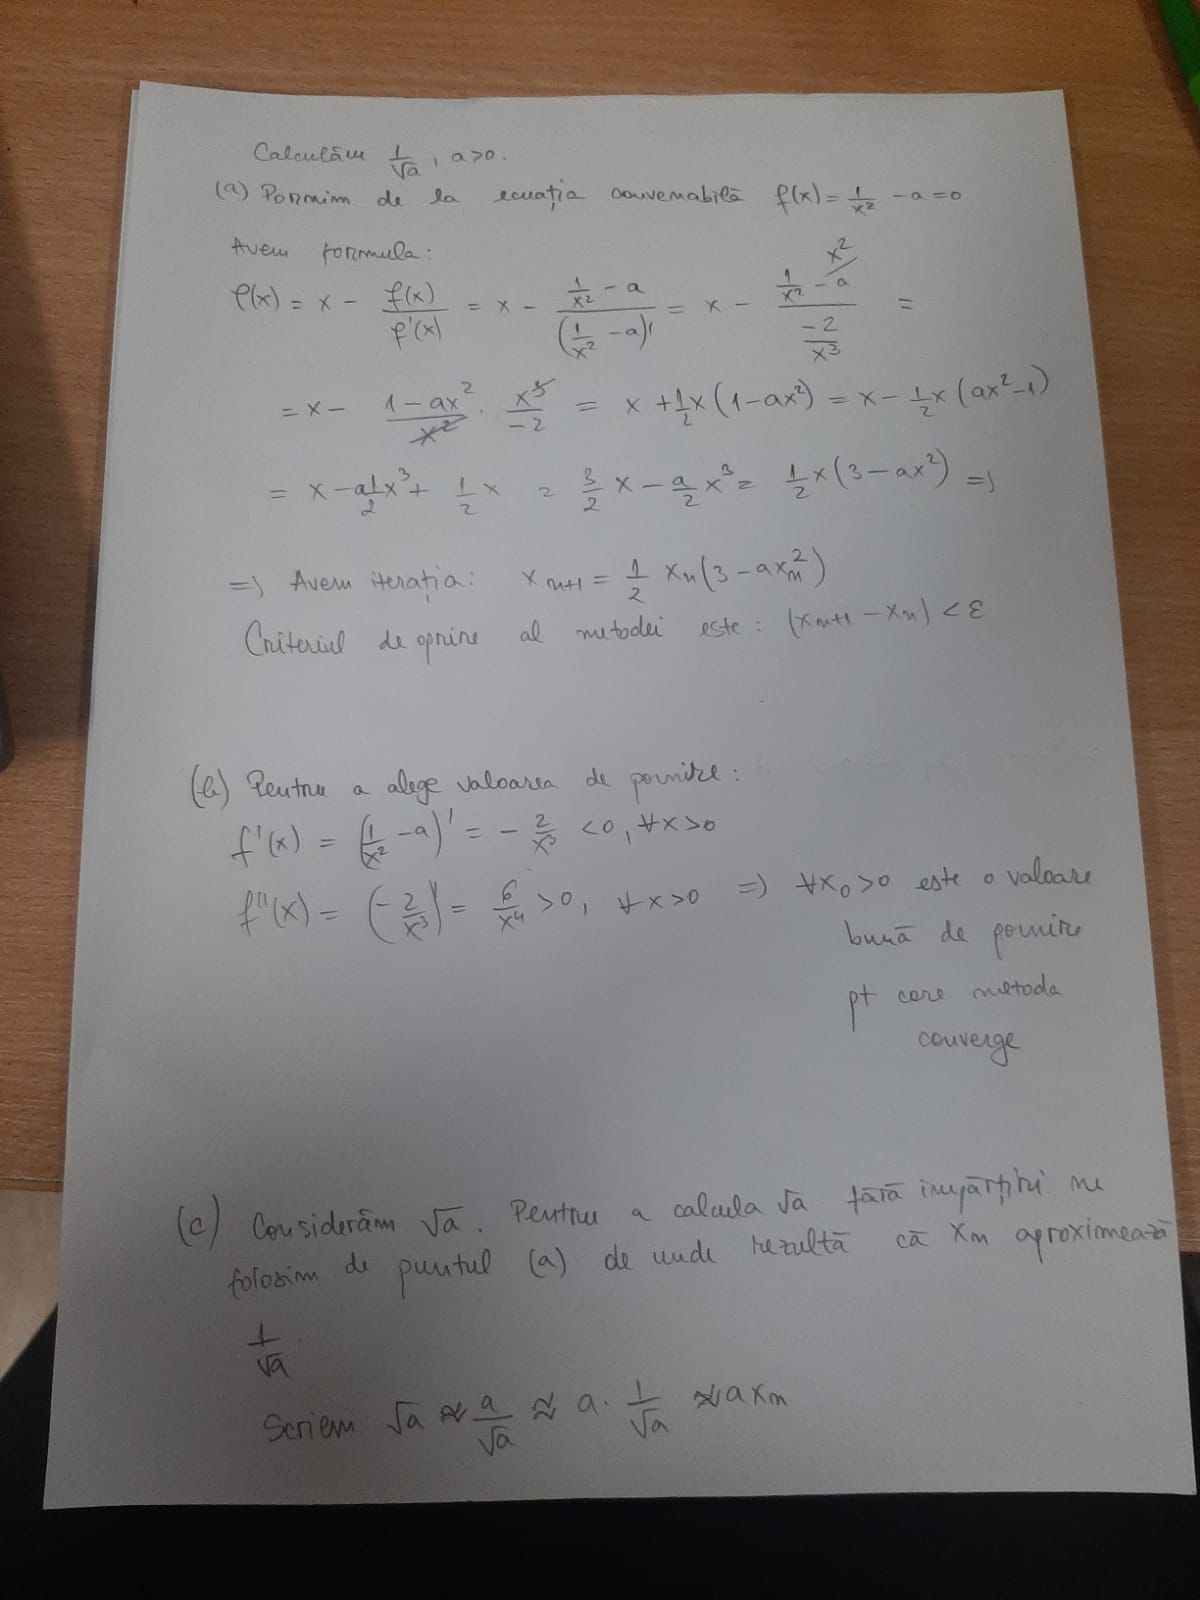 Calculăm 1/√a, a>0.
(a) Pornim de la ecuația convenabilă f(x) = 1/x² - a = 0
Avem formula:
φ(x) = x - f(x)/f'(x) = x - (1/x² - a)/(1/x² - a)' = x - (1/x² - x²/a)/(-2/x³) =
= x - (1-ax²)/x² · x³/-2 = x + 1/2 x (1-ax²) = x - 1/2 x (ax²-1)
= x - a 1/2 x³ + 1/2 x = 3/2 x - a/2 x³ = 1/2 x (3-ax²) =)
=) Avem iterația: xₙ₊₁ = 1/2 xₙ (3 - axₙ²)
Criteriul de oprire al metodei este: |xₙ₊₁ - xₙ| < ε
(b) Pentru a alege valoarea de pornire:
f'(x) = (1/x² - a)' = - 2/x³ < 0, ∀x>0
f''(x) = (- 2/x³)' = 6/x⁴ > 0, ∀x>0 =) ∀x₀>0 este o valoare
bună de pornire
pt care metoda
converge
(c) Considerăm √a. Pentru a calcula √a fără împărțiri ne
folosim de punctul (a) de unde rezultă că xₙ aproximează
1/√a
Scriem √a ≈ a/√a ≈ a · 1/√a ≈ axₙ